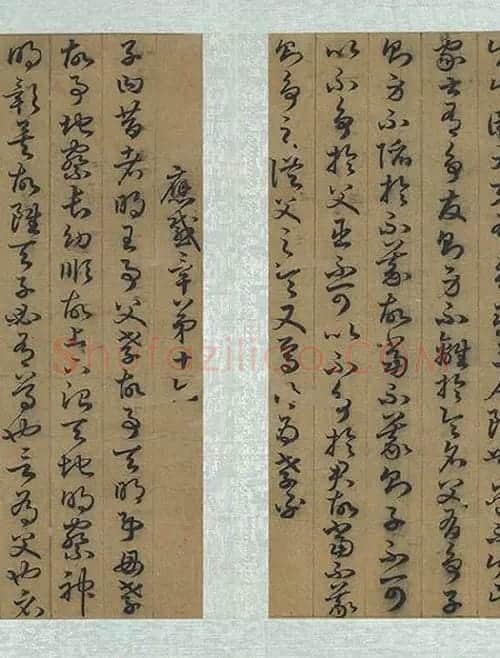 家士有爭友則身不離於令名父有爭子
則身不陷於不義故當不義則子不可
以不爭於父臣不可以不爭於君故當不義
則爭之從父之令又焉得為孝乎
應感章第十六
子曰昔者明王事父孝故事天明事母孝
故事地察長幼順故上下治天地明察神
明彰矣故雖天子必有尊也言有父也必
Shufaziliao.COM